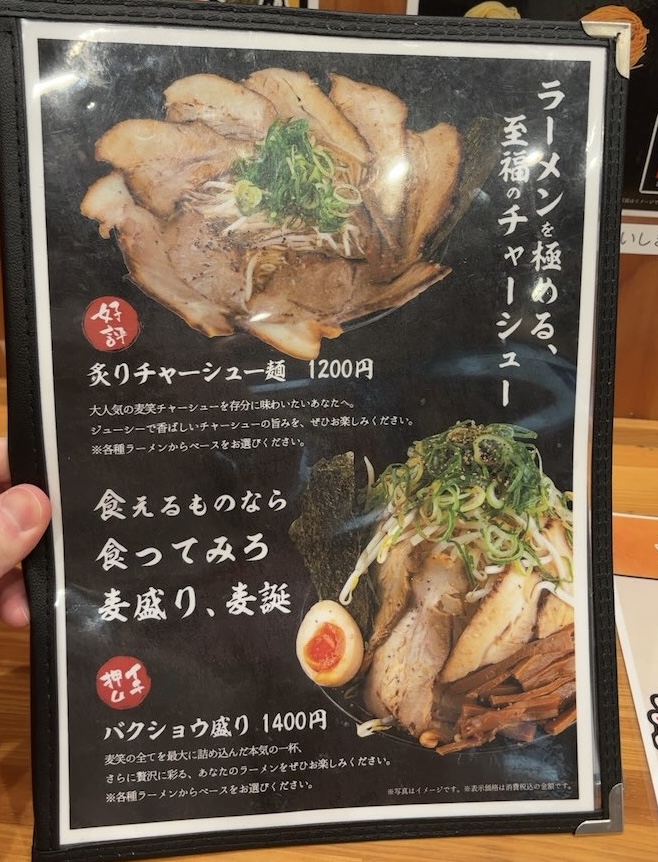 ラーメンを極める、
至福のチャーシュー
好評
炙りチャーシュー麺 1200円
大人気の麦笑チャーシューを存分に味わいたいあなたへ。
ジューシーで香ばしいチャーシューの旨みを、ぜひお楽しみください。
※各種ラーメンからベースをお選びください。
食えるものなら
食ってみろ
麦盛り、麦誕
イチ押し
バクショウ盛り 1400円
麦笑の全てを最大に詰め込んだ本気の一杯、
さらに贅沢に彩る、あなたのラーメンをぜひお楽しみください。
※各種ラーメンからベースをお選びください。
※写真はイメージです。※表示価格は消費税込の金額です。